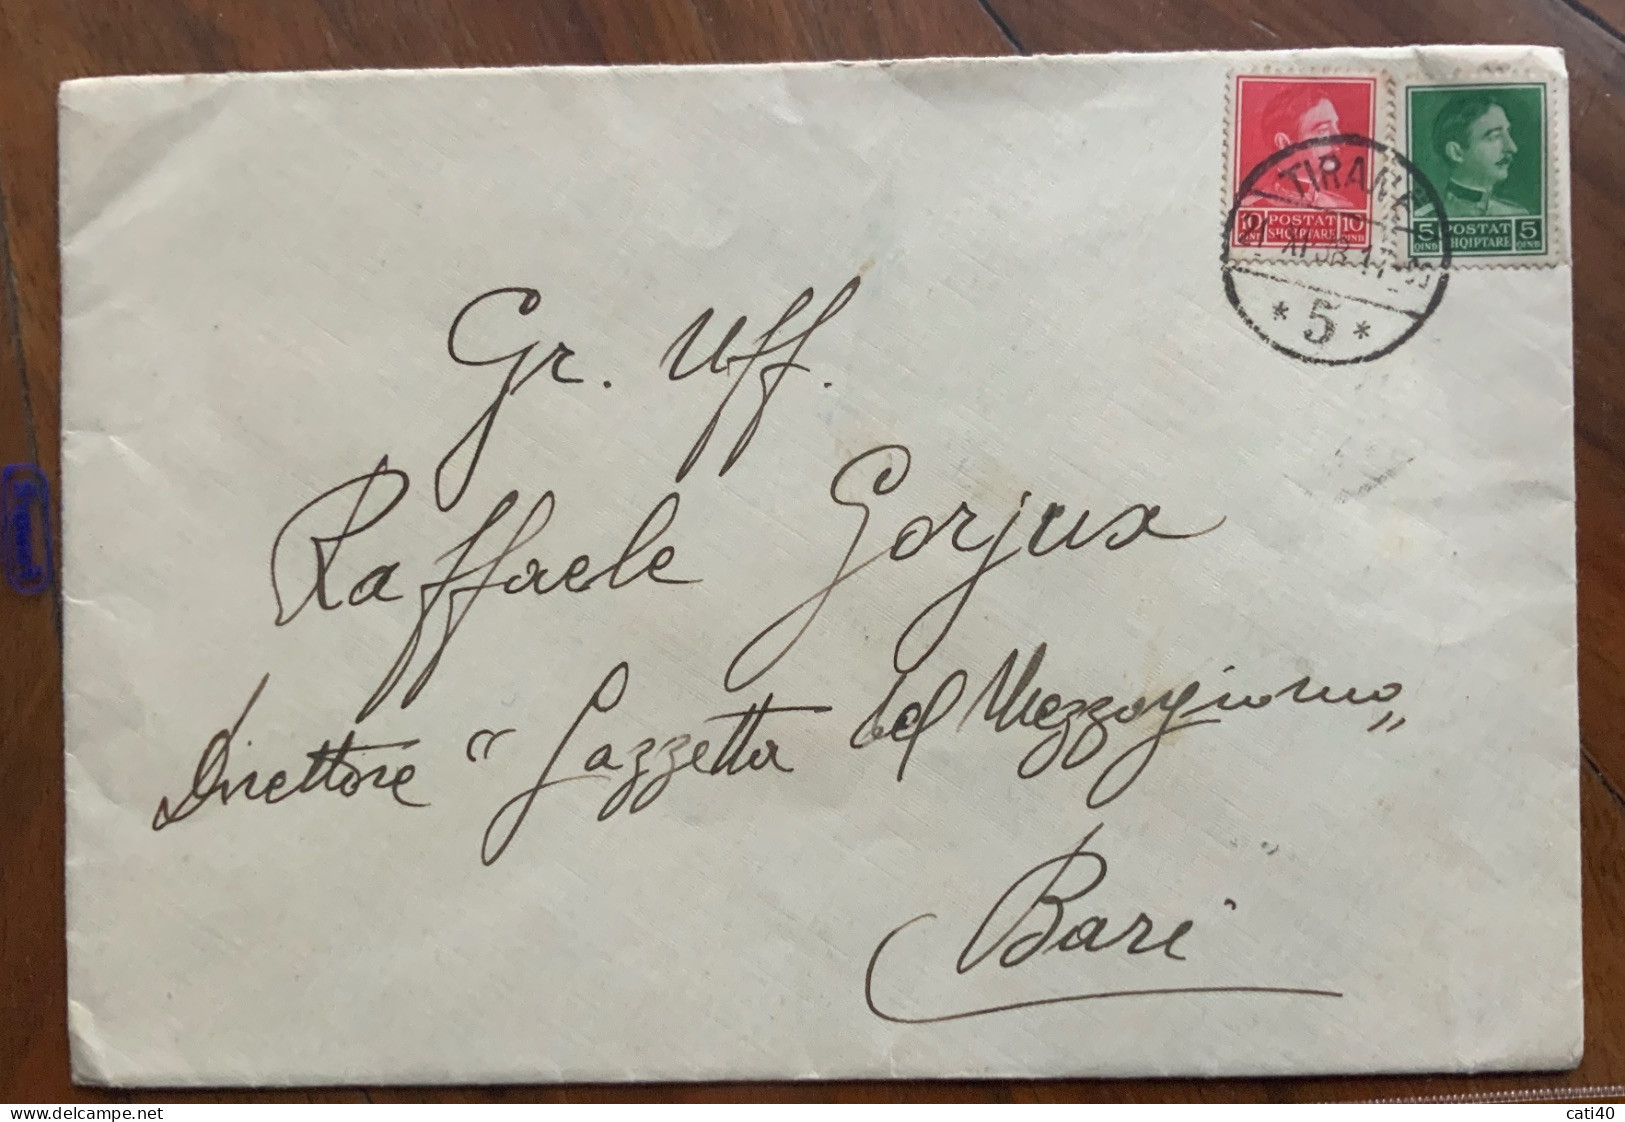 10 POSTAT 10
QIND SHQIPTARE QIND
5 POSTAT 5
QIND SHQIPTARE QIND
TIRANE
* 5 *
Gr. Uff.
Raffaele Gorjux
Direttore "Gazzetta del Mezzogiorno"
Bari
delcampe.net
cati40